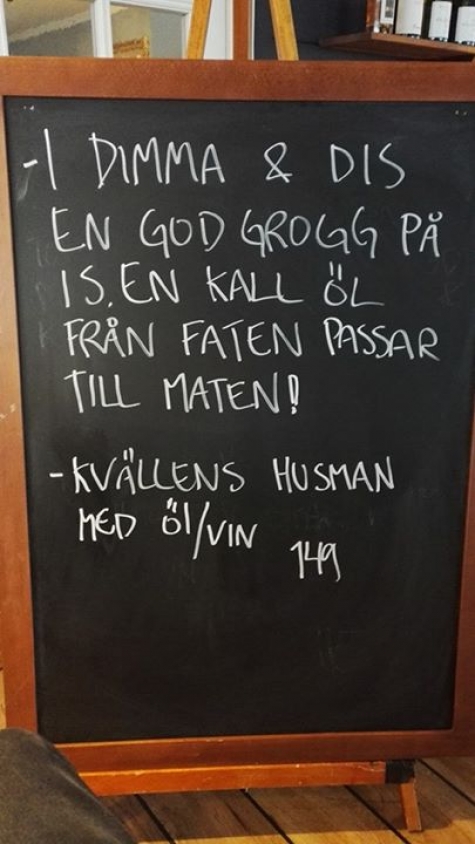 -I DIMMA & DIS
EN GOD GROGG PÅ
IS. EN KALL ÖL
FRÅN FATEN PASSAR
TILL MATEN!
-KVÄLLENS HUSMAN
MED ÖL/VIN
149